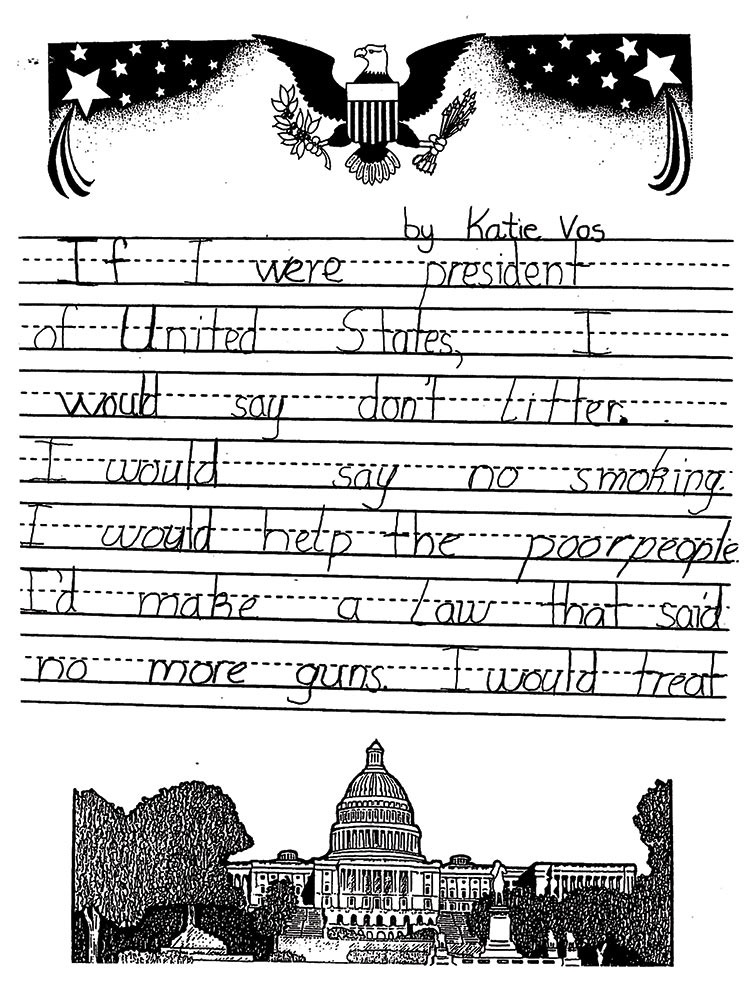 by Katie Vos
If I were president
of United States, I
would say don't litter.
I would say no smoking.
I would help the poor people.
I'd make a law that said
no more guns. I would treat